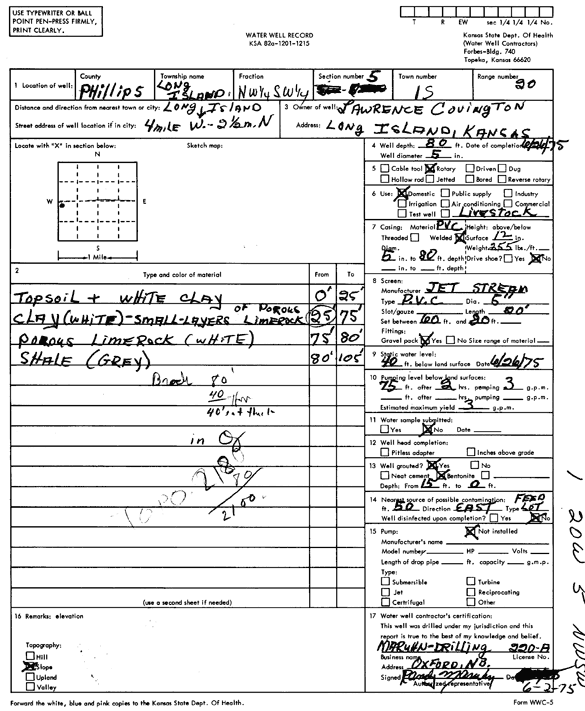 USE TYPEWRITER OR BALL
POINT PEN-PRESS FIRMLY,
PRINT CLEARLY.
WATER WELL RECORD
KSA 82a-1201-1215
T R EW sec 1/4 1/4 1/4 No.
Kansas State Dept. Of Health
(Water Well Contractors)
Forbes-Bldg. 740
Topeka, Kansas 66620
1 Location of well: County Phillips
Township name Long Island,
Fraction NW¼ SW¼
Section number 5
Town number 1S
Range number 20
Distance and direction from nearest town or city: Long Island
Street address of well location if in city: 4 mile W. - 2½ m. N
3 Owner of well: Lawrence Covington
Address: Long Island, Kansas
Locate with "X" in section below:
Sketch map:
N
W E
S
1 Mile
4 Well depth: 80 ft. Date of completion 6/26/75
Well diameter 5 in.
5 Cable tool Rotary Driven Dug
Hollow rod Jetted Bored Reverse rotary
6 Use: Domestic Public supply Industry
Irrigation Air conditioning Commercial
Test well Livestock
7 Casing: Material PVC Height: above/below
Threaded Welded Surface 12 in.
Diam. Weight lbs./ft.
5 in. to 80 ft. depth Drive shoe? Yes No
in. to ft. depth
8 Screen:
Manufacturer JET STREAM
Type P.V.C Dia. 5"
Slot/gauze Length 20'
Set between 60 ft. and 80 ft.
Fittings:
Gravel pack Yes No Size range of material
9 Static water level:
40 ft. below land surface Date 6/26/75
10 Pumping level below land surfaces:
75 ft. after 2 hrs. pumping 3 g.p.m.
ft. after hrs. pumping g.p.m.
Estimated maximum yield 3 g.p.m.
11 Water sample submitted:
Yes No Date
12 Well head completion:
Pitless adapter Inches above grade
13 Well grouted? Yes No
Neat cement Bentonite
Depth: From 15 ft. to 0 ft.
14 Nearest source of possible contamination: FEED
ft. 50 Direction EAST Type LOT
Well disinfected upon completion? Yes No
15 Pump: Not installed
Manufacturer's name
Model number HP Volts
Length of drop pipe ft. capacity g.m.p.
Type:
Submersible Turbine
Jet Reciprocating
Certrifugal Other
2 Type and color of material From To
Topsoil + White Clay 0' 25'
Clay (white) - small-layers of porous limerock 25' 75'
Porous Limerock (white) 75' 80'
Shale (Grey) 80' 105'
80'
40
40'
in
2180
2100
(use a second sheet if needed)
16 Remarks: elevation
Topography:
Hill
Slope
Upland
Valley
17 Water well contractor's certification:
This well was drilled under my jurisdiction and this
report is true to the best of my knowledge and belief.
MARUHN-DRILLING 220-A
Business name License No.
Address OXFORD, NB.
Signed Randy Maruhn Date
Authorized representative 6-2-75
1 20W 5 NWSW
Forward the white, blue and pink copies to the Kansas State Dept. Of Health.
Form WWC-5